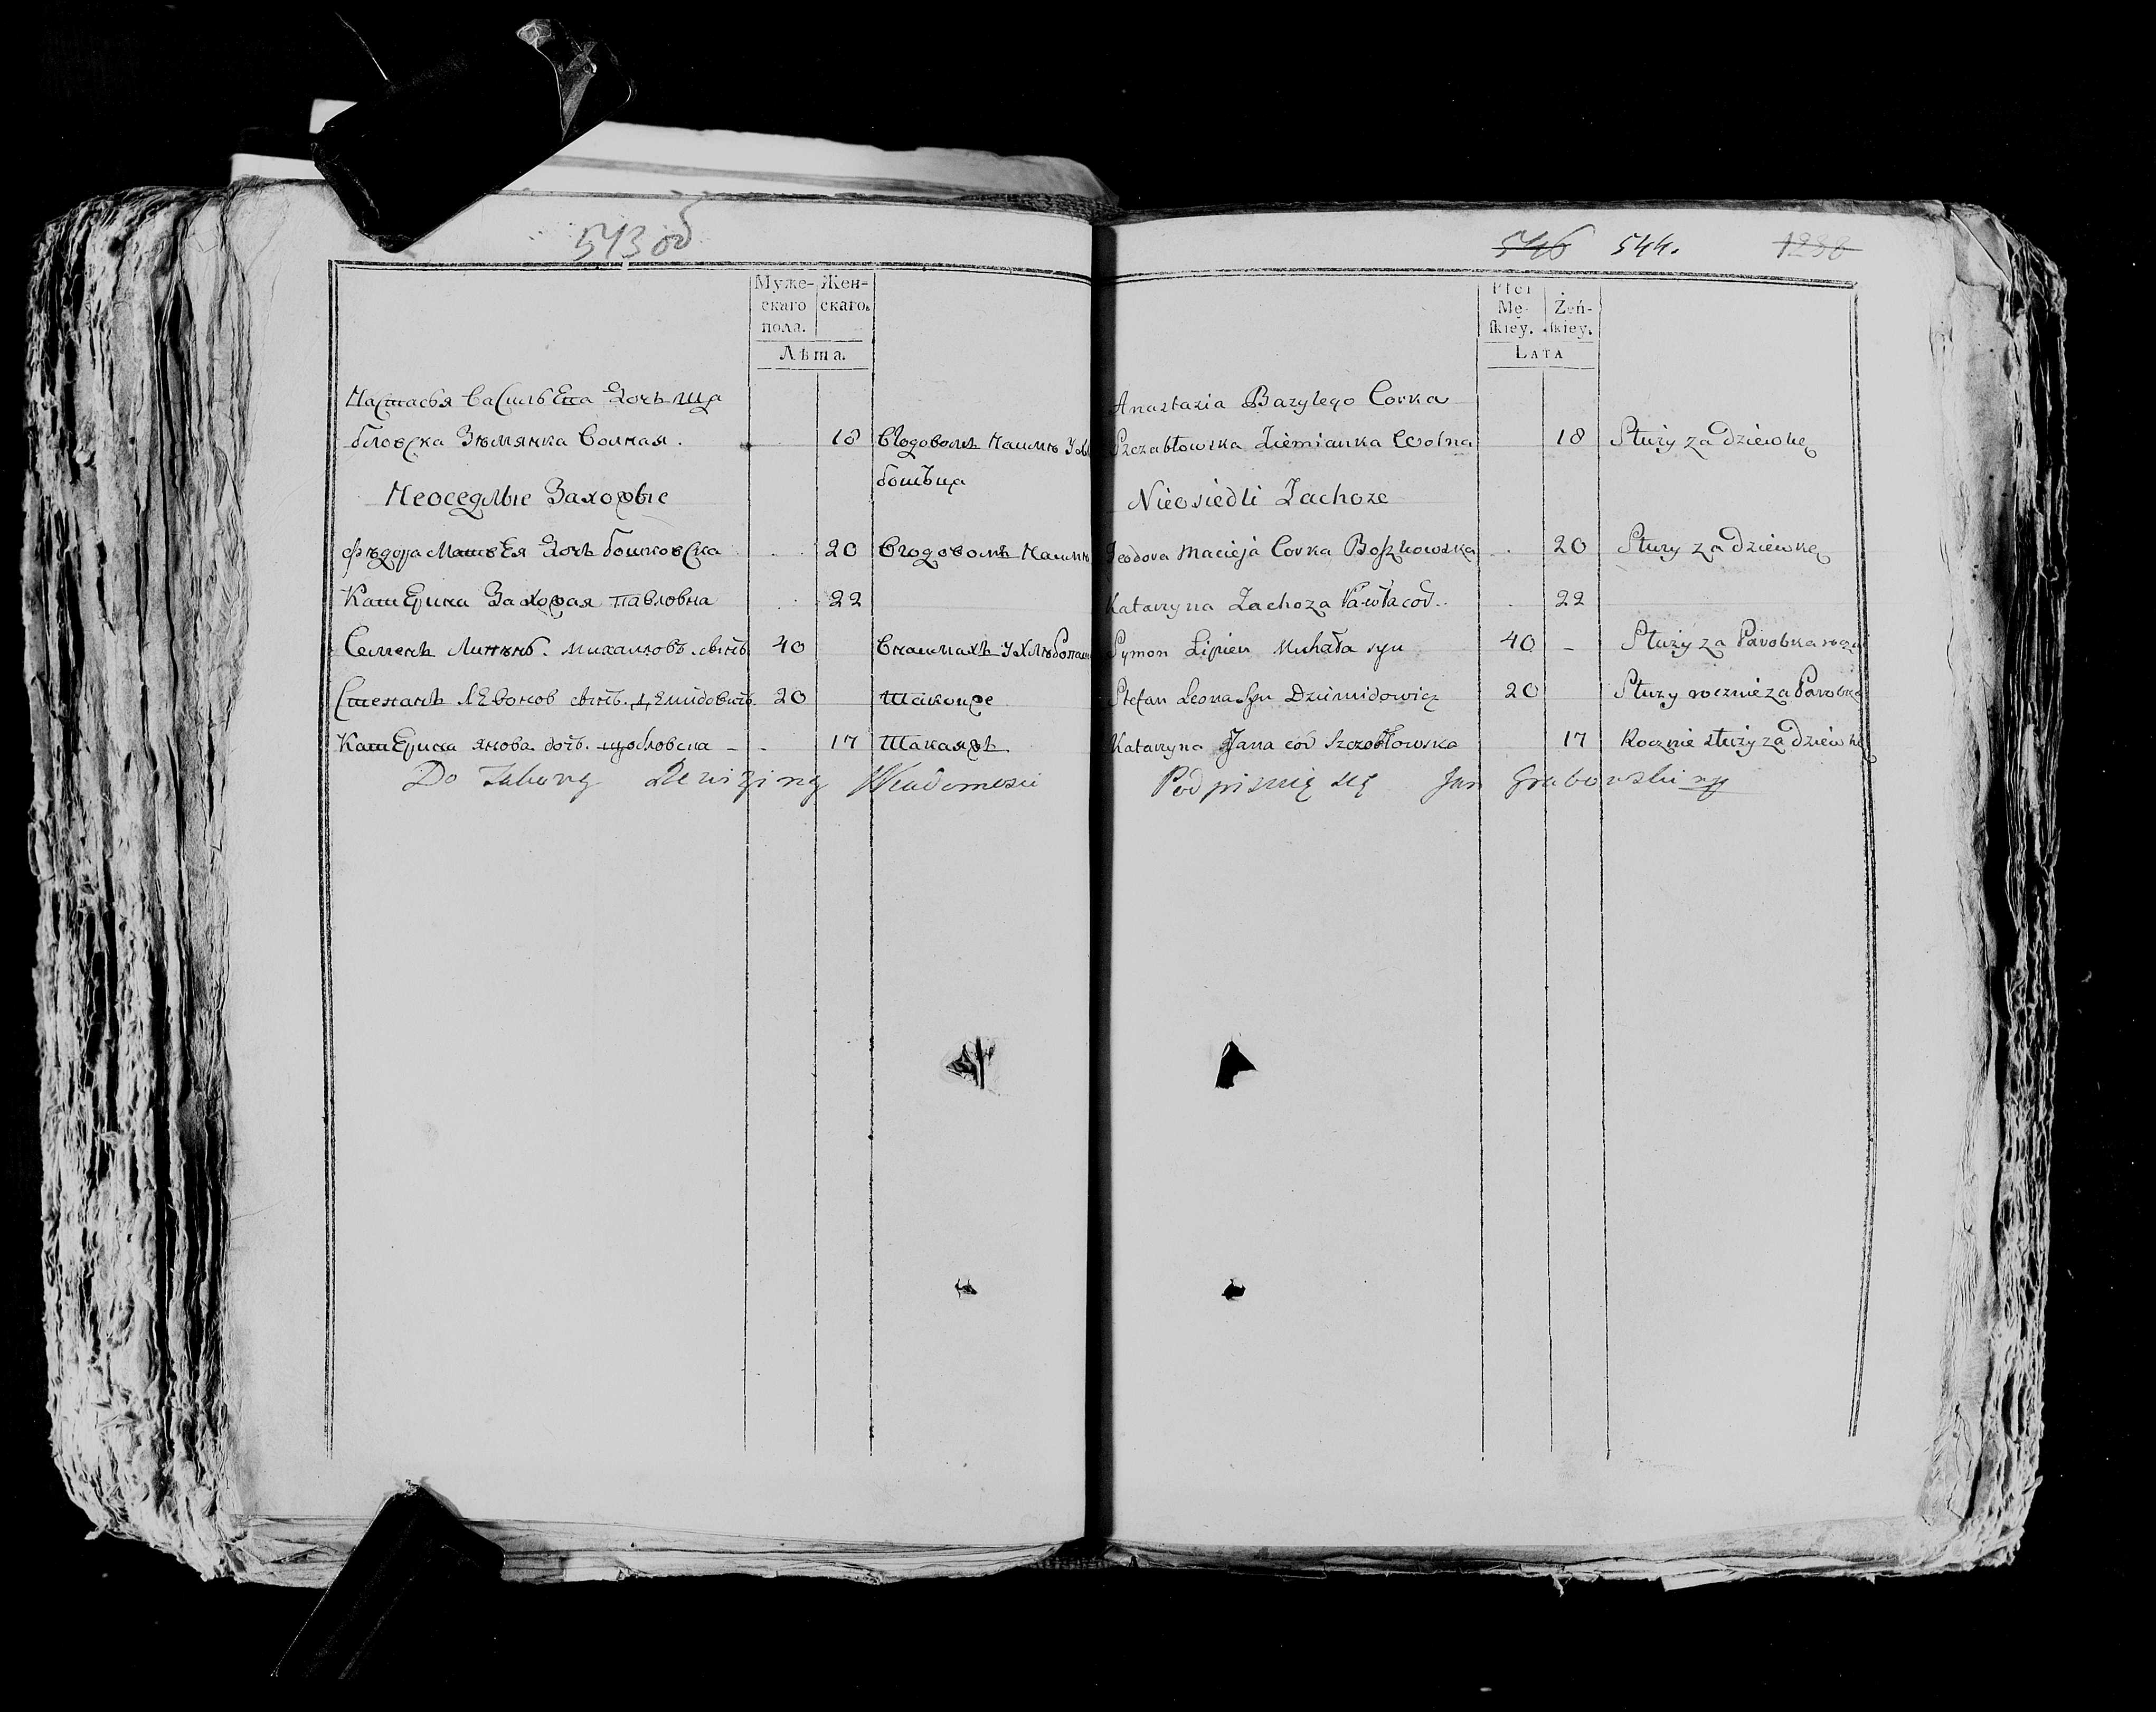 543 об
Муже- Жен-
скаго скаго.
пола.
Лѣта.
Настасья василь Ева дочь ща
бловска Зѣмянка Волная. 18 Вгодовомъ Наимѣ У хлѣ
бопаш́ца
Неоседлые Захожые
Фѣдора Матвѣя дочь бошковска 20 Вгодовомъ Наимѣ
КатЕрина Захожая павловна 22
Семенъ Липѣнь. михаиловъ. сынъ 40 Внаимахъ У Хлѣбопашц
Степанъ лЕвонов сынъ. дЕмидовичъ. 20 Такожe
КатЕрина янова. доч. щобловска 17 Такаяжъ
Do Takowey Rewizyiney Wiadomości
546 544. 1238
Płci
Mę- Żeń-
skiey. skiey.
LATA
Anastazia Bazylego Corka
Szczabłowska Ziemianka Wolna 18 Służy za dziewkę
Nieosiedli Zachoze
Teodora Macieja Corka Boszkowska 20 Służy za dziewkę
Katarzyna Zachoza Pawła cor. 22
Symon Lipien Michała syn 40 Służy za Parobka
Stefan Leona Syn Dziemidowicz 20 Służy rocznie za Parobka
Katarzyna Jana cor Szczobłowska 17 Rocznie służy za dziewkę
Podpisuię się Jan Grabowski mp